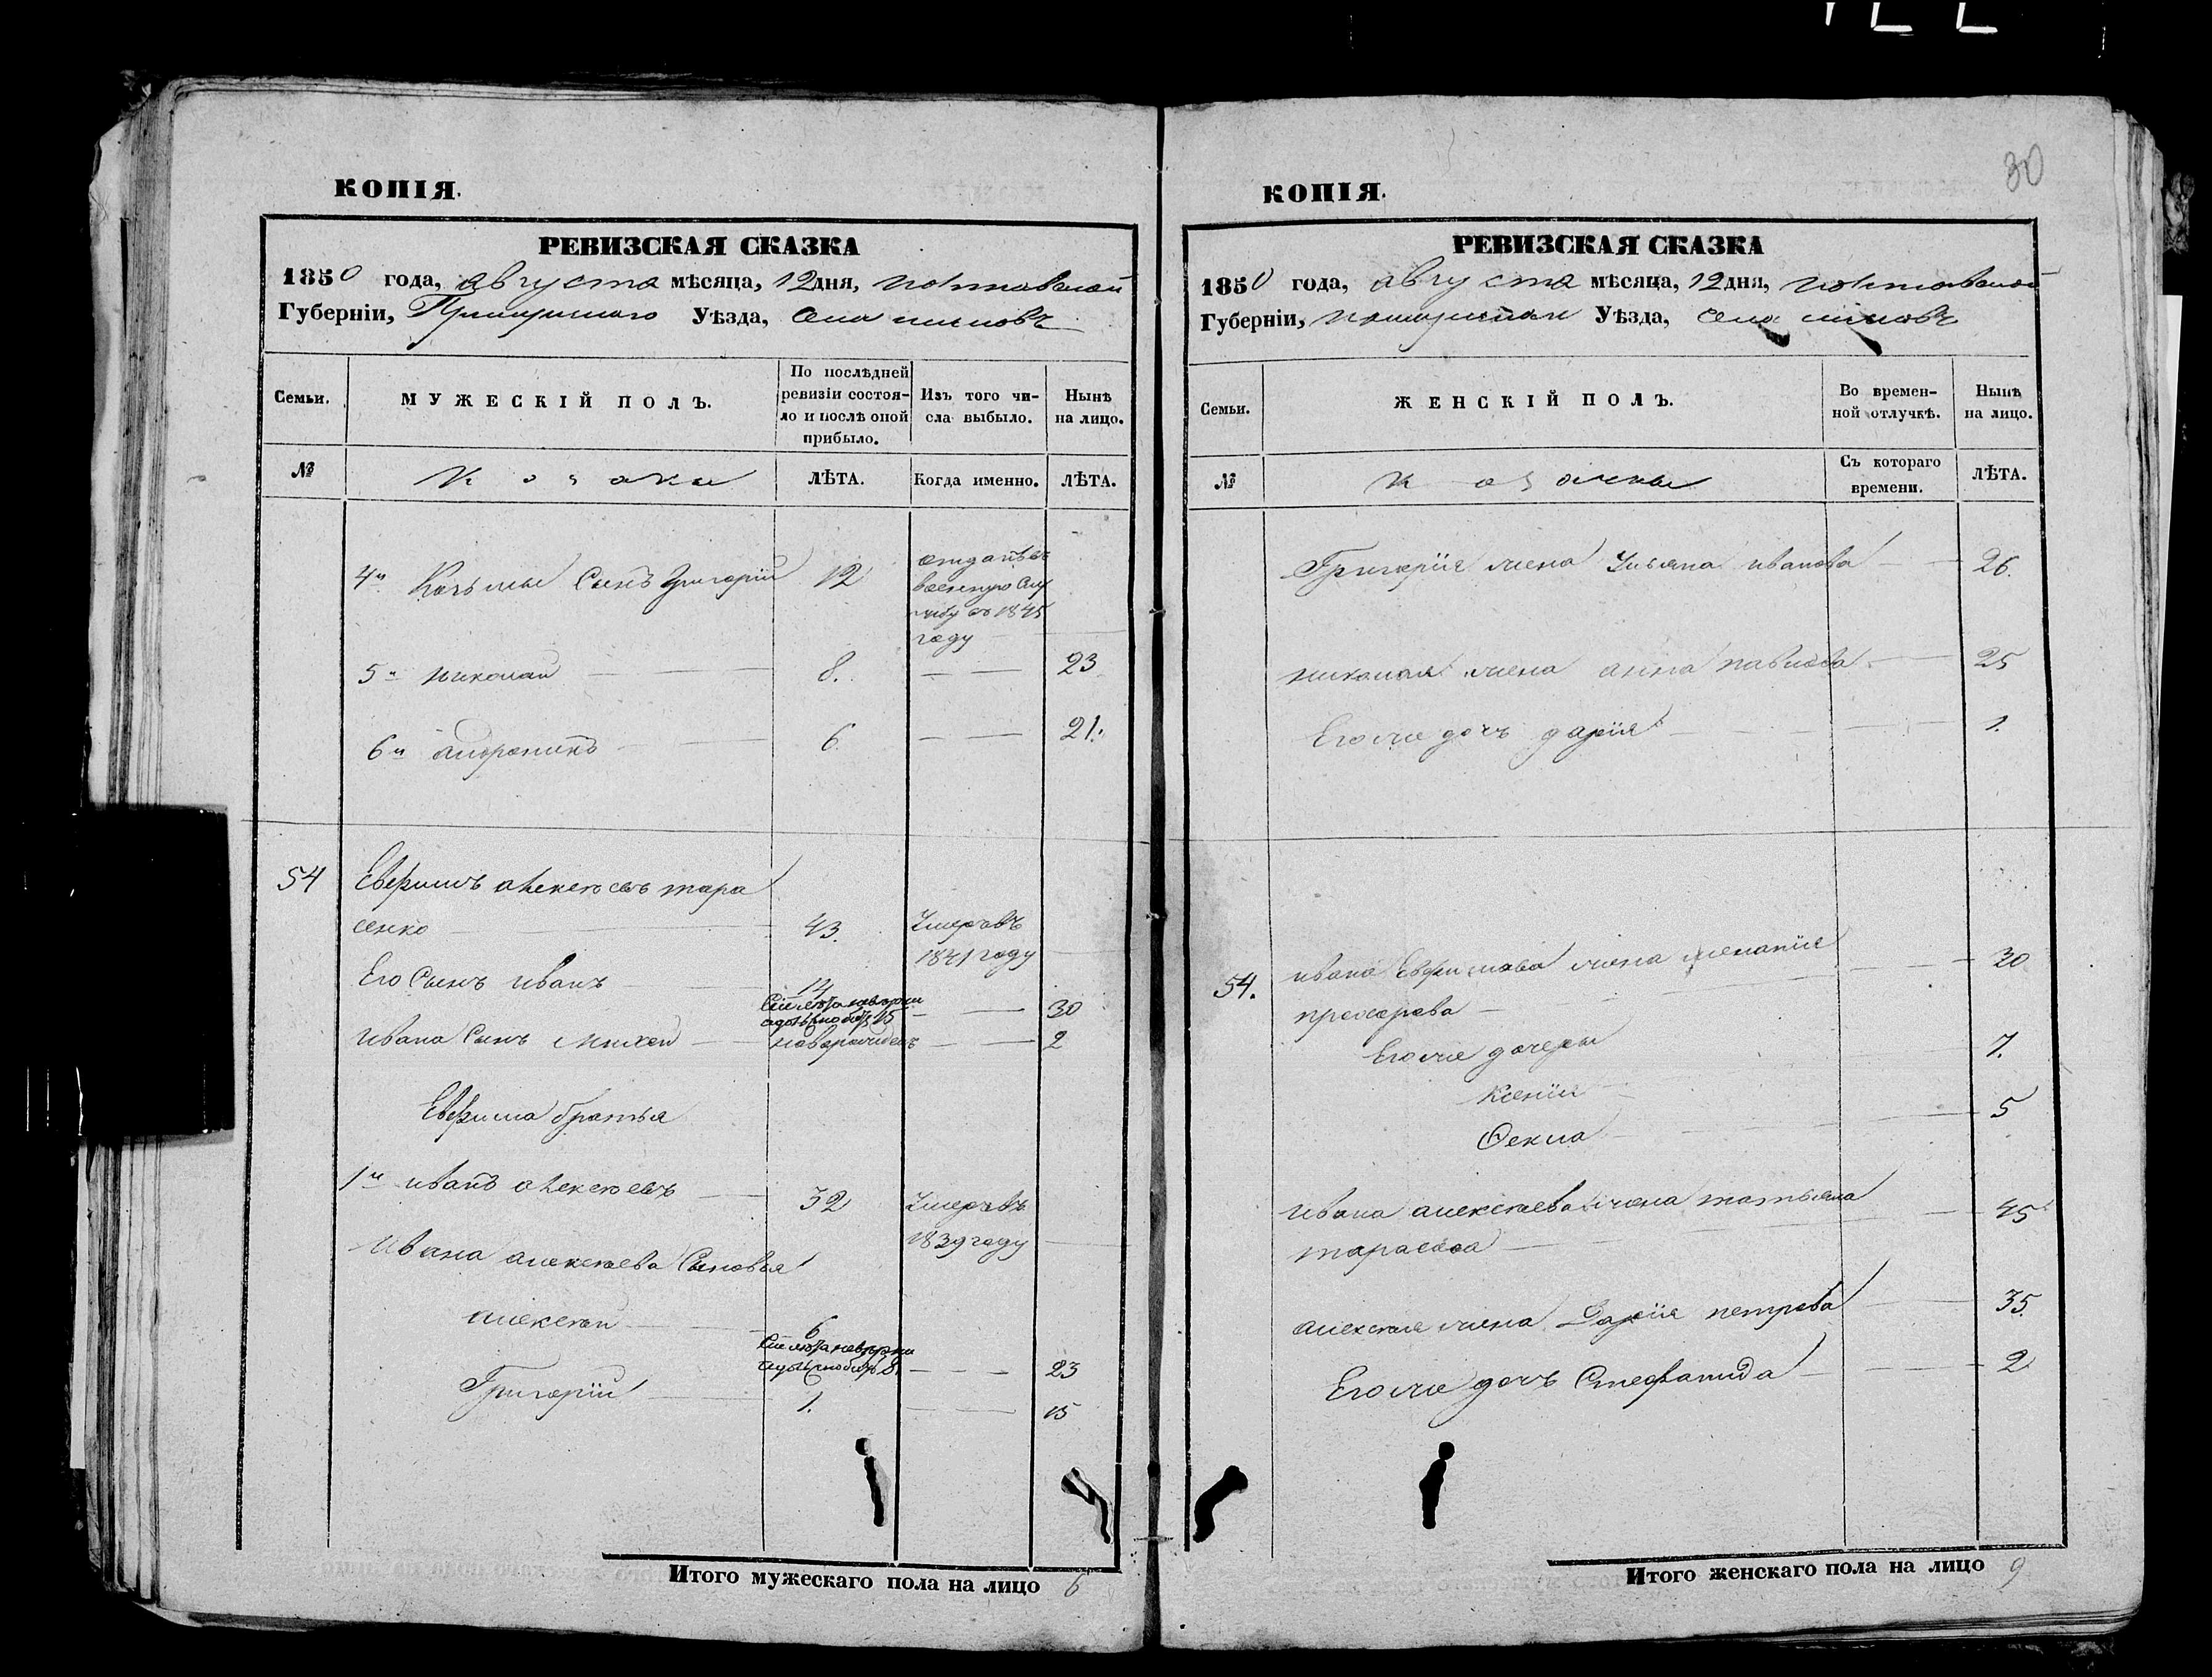 30
КОПІЯ.
РЕВИЗСКАЯ СКАЗКА
1850 года, августа мѣсяца, 12 дня, полтавской
Губерніи, Уѣзда, села
Семьи.
МУЖЕСКІЙ ПОЛЪ.
По послѣдней ревизіи состояло и послѣ оной прибыло.
Изъ того числа выбыло.
Нынѣ на лицо.
№
Козаки
ЛѢТА.
Когда именно.
ЛѢТА.
4й Козьмы Сынъ Григорій 12
отданъ въ
военную слу
жбу въ 1845
году
5й николай 8. 23
6й андроникъ 6. 21.
54 Евфимъ алексѣевъ тара
сенко 43. Умеръ въ
1841 году
Его Сынъ иванъ 14
15 30
Ивана Сынъ михей новорожденъ 2
Евфима братья
1й иванъ алексѣевъ 32 Умеръ въ
1839 году
Ивана алексѣева Сыновья
алексѣй 6
8. 23
Григорій 1. 15
Итого мужескаго пола на лицо 6
КОПІЯ.
РЕВИЗСКАЯ СКАЗКА
1850 года, августа мѣсяца, 12 дня, полтавской
Губерніи, Уѣзда, села
Семьи.
ЖЕНСКІЙ ПОЛЪ.
Во временной отлучкѣ.
Нынѣ на лицо.
№
козачки
Съ котораго времени.
ЛѢТА.
Григорія жена Ульяна иванова 26.
николая жена анна павлова 25
Его же дочь дарія 1.
54. ивана Евфимова жена меланія 30
прохорова
Его же дочери 7.
Ксенія
Ѳекла 5
Ивана алексѣева жена татьяна 45
тарасова
алексѣя жена Дарія петрова 35.
Его же дочь Стефанида 2
Итого женскаго пола на лицо 9